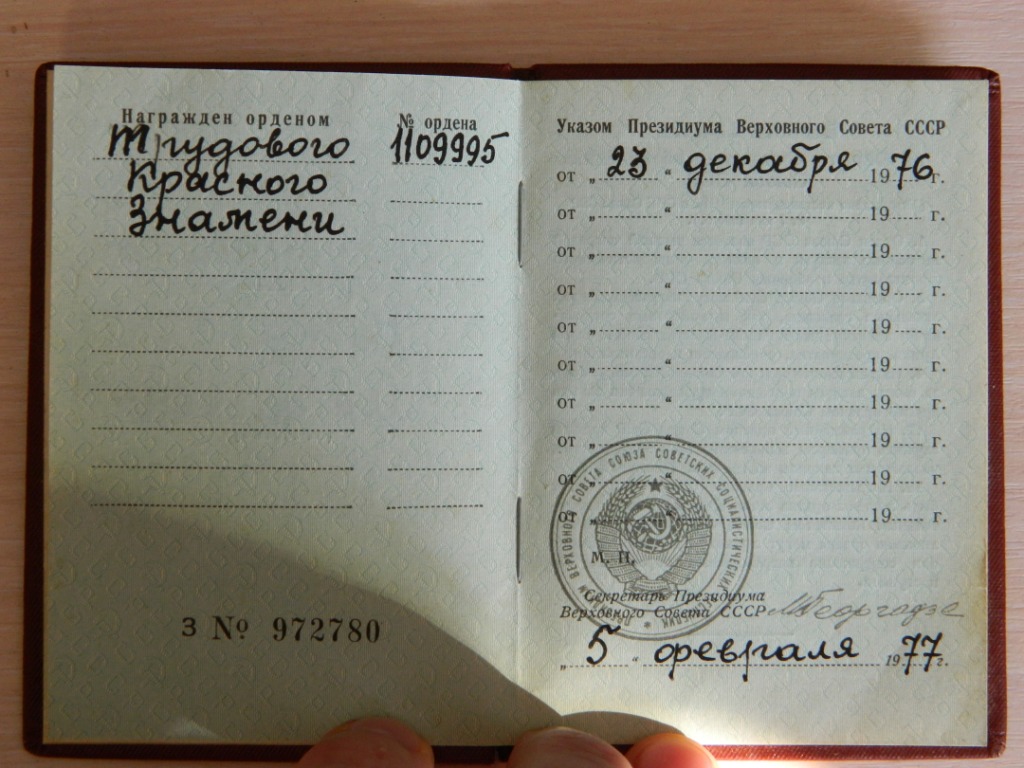 Награжден орденом
№ ордена
Трудового
1109995
Красного
Знамени
З № 972780
Указом Президиума Верховного Совета СССР
от „ 23 “ декабря 1976 г.
от „ “ 19 г.
от „ “ 19 г.
от „ “ 19 г.
от „ “ 19 г.
от „ “ 19 г.
от „ “ 19 г.
от „ “ 19 г.
от „ “ 19 г.
от „ “ 19 г.
М. П.
Секретарь Президиума
Верховного Совета СССР МГеоргадзе
„ 5 “ февраля 1977 г.
ВЕРХОВНОГО СОВЕТА СОЮЗА СОВЕТСКИХ СОЦИАЛИСТИЧЕСКИХ